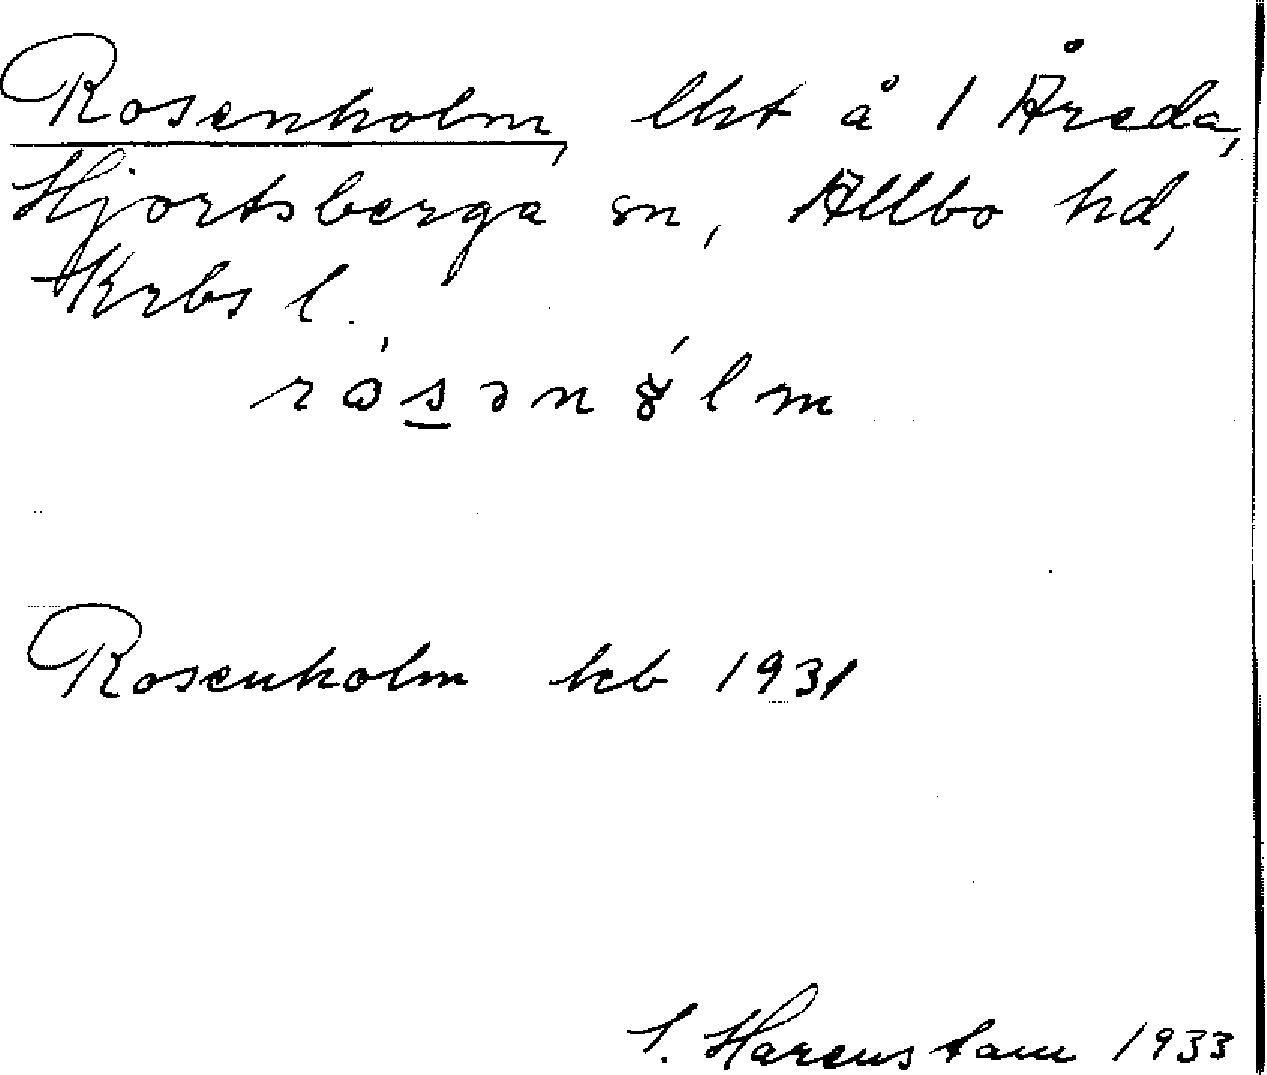 Rosenholm, lht å 1 Åreda,
Hjortsberga sn, Allbo hd,
Krbs l.
rósənólm
Rosenholm kb 1931
S. Harenstam 1933